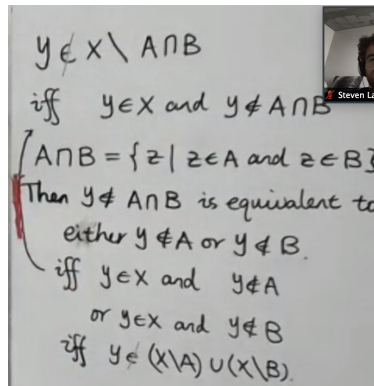 y ∉ X \ A∩B
Steven La
iff y∈X and y∉A∩B
A∩B = {z | z∈A and z∈B}
Then y∉A∩B is equivalent to
either y∉A or y∉B.
iff y∈X and y∉A
or y∈X and y∉B
iff y∈(X\A)∪(X\B).